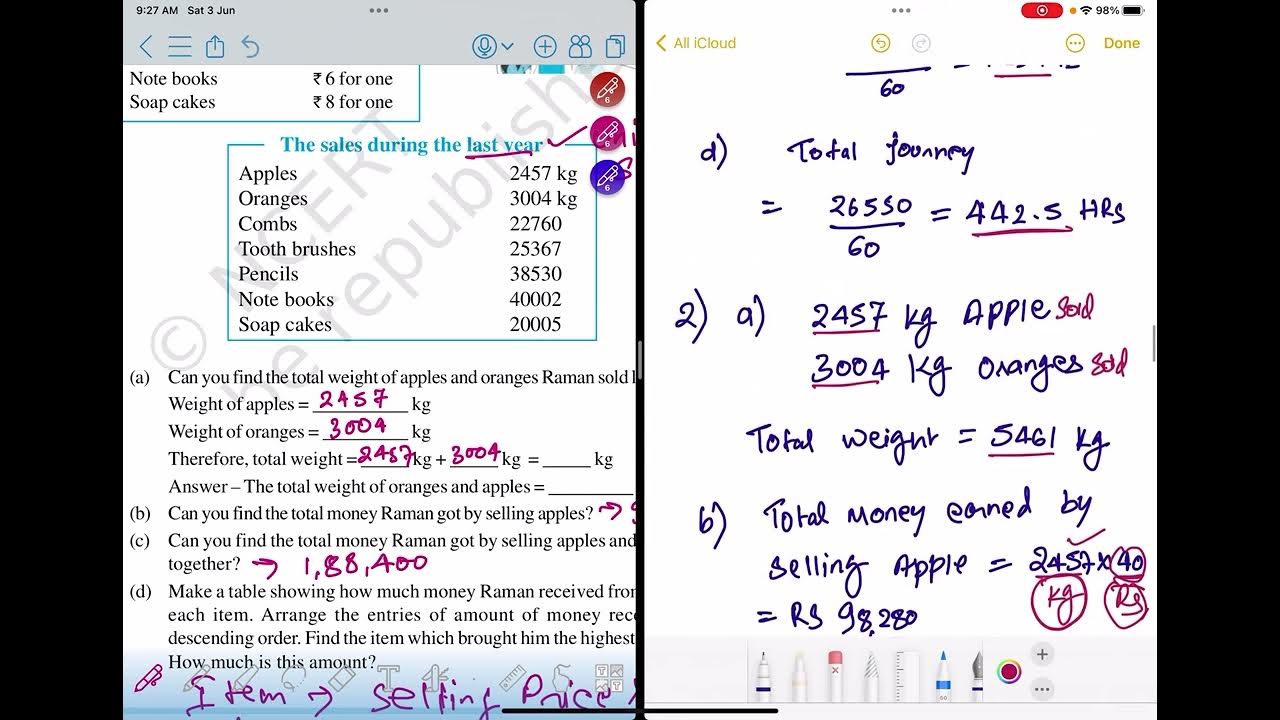 9:27 AM Sat 3 Jun
98%
Note books ₹ 6 for one
Soap cakes ₹ 8 for one
The sales during the last year
Apples 2457 kg
Oranges 3004 kg
Combs 22760
Tooth brushes 25367
Pencils 38530
Note books 40002
Soap cakes 20005
© NCERT
be republish
(a) Can you find the total weight of apples and oranges Raman sold
Weight of apples = 2457 kg
Weight of oranges = 3004 kg
Therefore, total weight = 2457 kg + 3004 kg = ______ kg
Answer – The total weight of oranges and apples = ________
(b) Can you find the total money Raman got by selling apples? →
(c) Can you find the total money Raman got by selling apples and
together? → 1,88,400
(d) Make a table showing how much money Raman received from
each item. Arrange the entries of amount of money rec
descending order. Find the item which brought him the highest
How much is this amount?
Item → Selling Price
All iCloud
Done
60
d) Total Journey
= 26550/60 = 442.5 HRS
2) a) 2457 kg Apple sold
3004 kg oranges sold
Total weight = 5461 kg
b) Total money earned by
selling Apple = 2457 x 40
kg Rs
= Rs 98,280